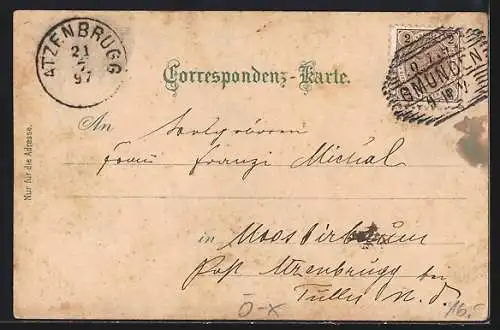 ATZENBRUGG
21
7
97
2
GMUNDEN
Correspondenz-Karte.
An
Frau Franzi Michal
in Moosbierbaum
Post Atzenbrugg bei
Tulln N. Ö.
Nur für die Adresse.
Ö-X